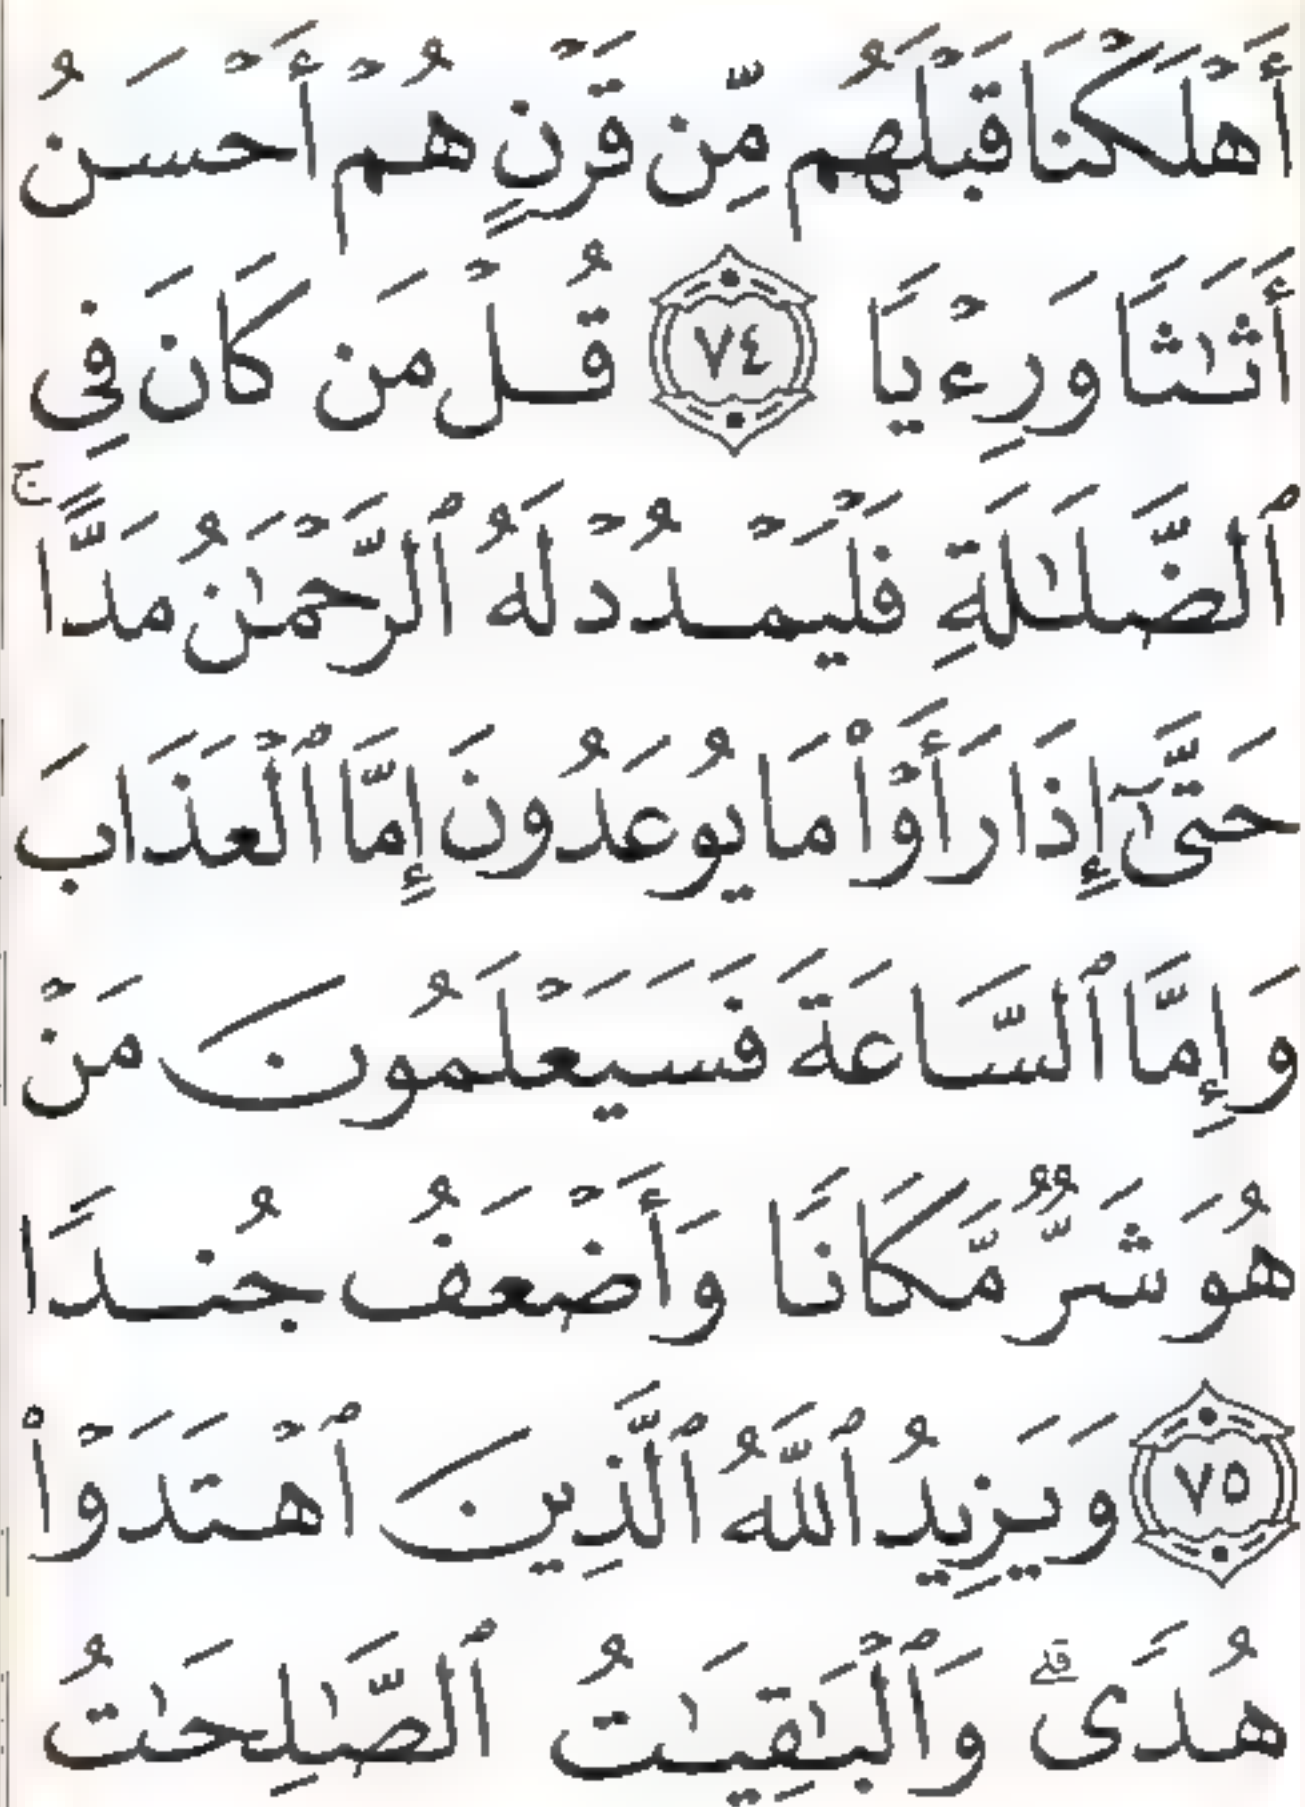 أَهْلَكْنَا قَبْلَهُم مِّن قَرْنٍ هُمْ أَحْسَنُ
أَثَٰثًا وَرِءْيًا ٧٤ قُلْ مَن كَانَ فِى
ٱلضَّلَٰلَةِ فَلْيَمْدُدْ لَهُ ٱلرَّحْمَٰنُ مَدًّا ۚ
حَتَّىٰٓ إِذَا رَأَوْا۟ مَا يُوعَدُونَ إِمَّا ٱلْعَذَابَ
وَإِمَّا ٱلسَّاعَةَ فَسَيَعْلَمُونَ مَنْ
هُوَ شَرٌّ مَّكَانًا وَأَضْعَفُ جُندًا
٧٥ وَيَزِيدُ ٱللَّهُ ٱلَّذِينَ ٱهْتَدَوْا۟
هُدًى ۗ وَٱلْبَٰقِيَٰتُ ٱلصَّٰلِحَٰتُ